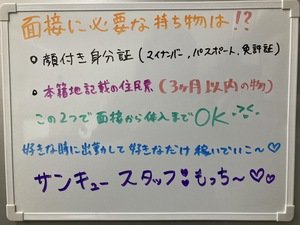 面接に必要な持ち物は!?
○ 顔付き身分証(マイナンバー, パスポート, 免許証)
○ 本籍地記載の住民票(3ヶ月以内の物)
この2つで面接から体入までOK
好きな時に出勤して好きなだけ稼いでいこ〜♡
サンキュー スタッフ もっち〜♡♡